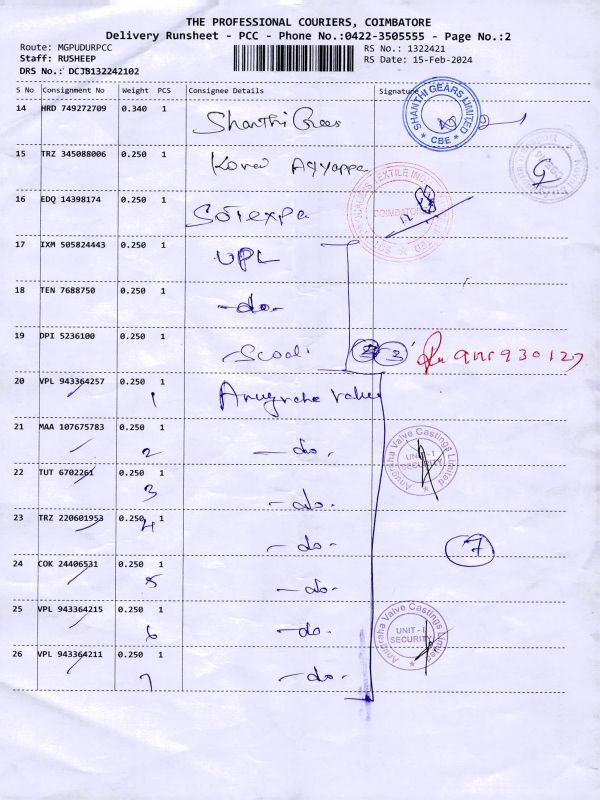 THE PROFESSIONAL COURIERS, COIMBATORE
Delivery Runsheet - PCC - Phone No.:0422-3505555 - Page No.:2
Route: MGPUDURPCC RS No.: 1322421
Staff: RUSHEEP RS Date: 15-Feb-2024
DRS No.: DCJB132242102
S No Consignment No Weight PCS Consignee Details Signature
14 HRD 749272709 0.340 1 Shanthi Gears
SHANTHI GEARS LIMITED
CBE
15 TRZ 345088006 0.250 1
16 EDQ 14398174 0.250 1
COIMBATORE
17 IXM 505824443 0.250 1 UPL
18 TEN 7688750 0.250 1 -do-
19 DPI 5236100 0.250 1 3
20 VPL 943364257 0.250 1 Anugraha Valve
1
21 MAA 107675783 0.250 1 -do-
2
Anugraha Valve Castings Limited
UNIT-I
SECURITY
22 TUT 6702261 0.250 1 -do-
3
23 TRZ 220601953 0.250 1 -do-
4
7
24 COK 24406531 0.250 1 -do-
5
25 VPL 943364215 0.250 1 -do-
6
Anugraha Valve Castings Limited
UNIT-I
SECURITY
26 VPL 943364211 0.250 1 -do-
7